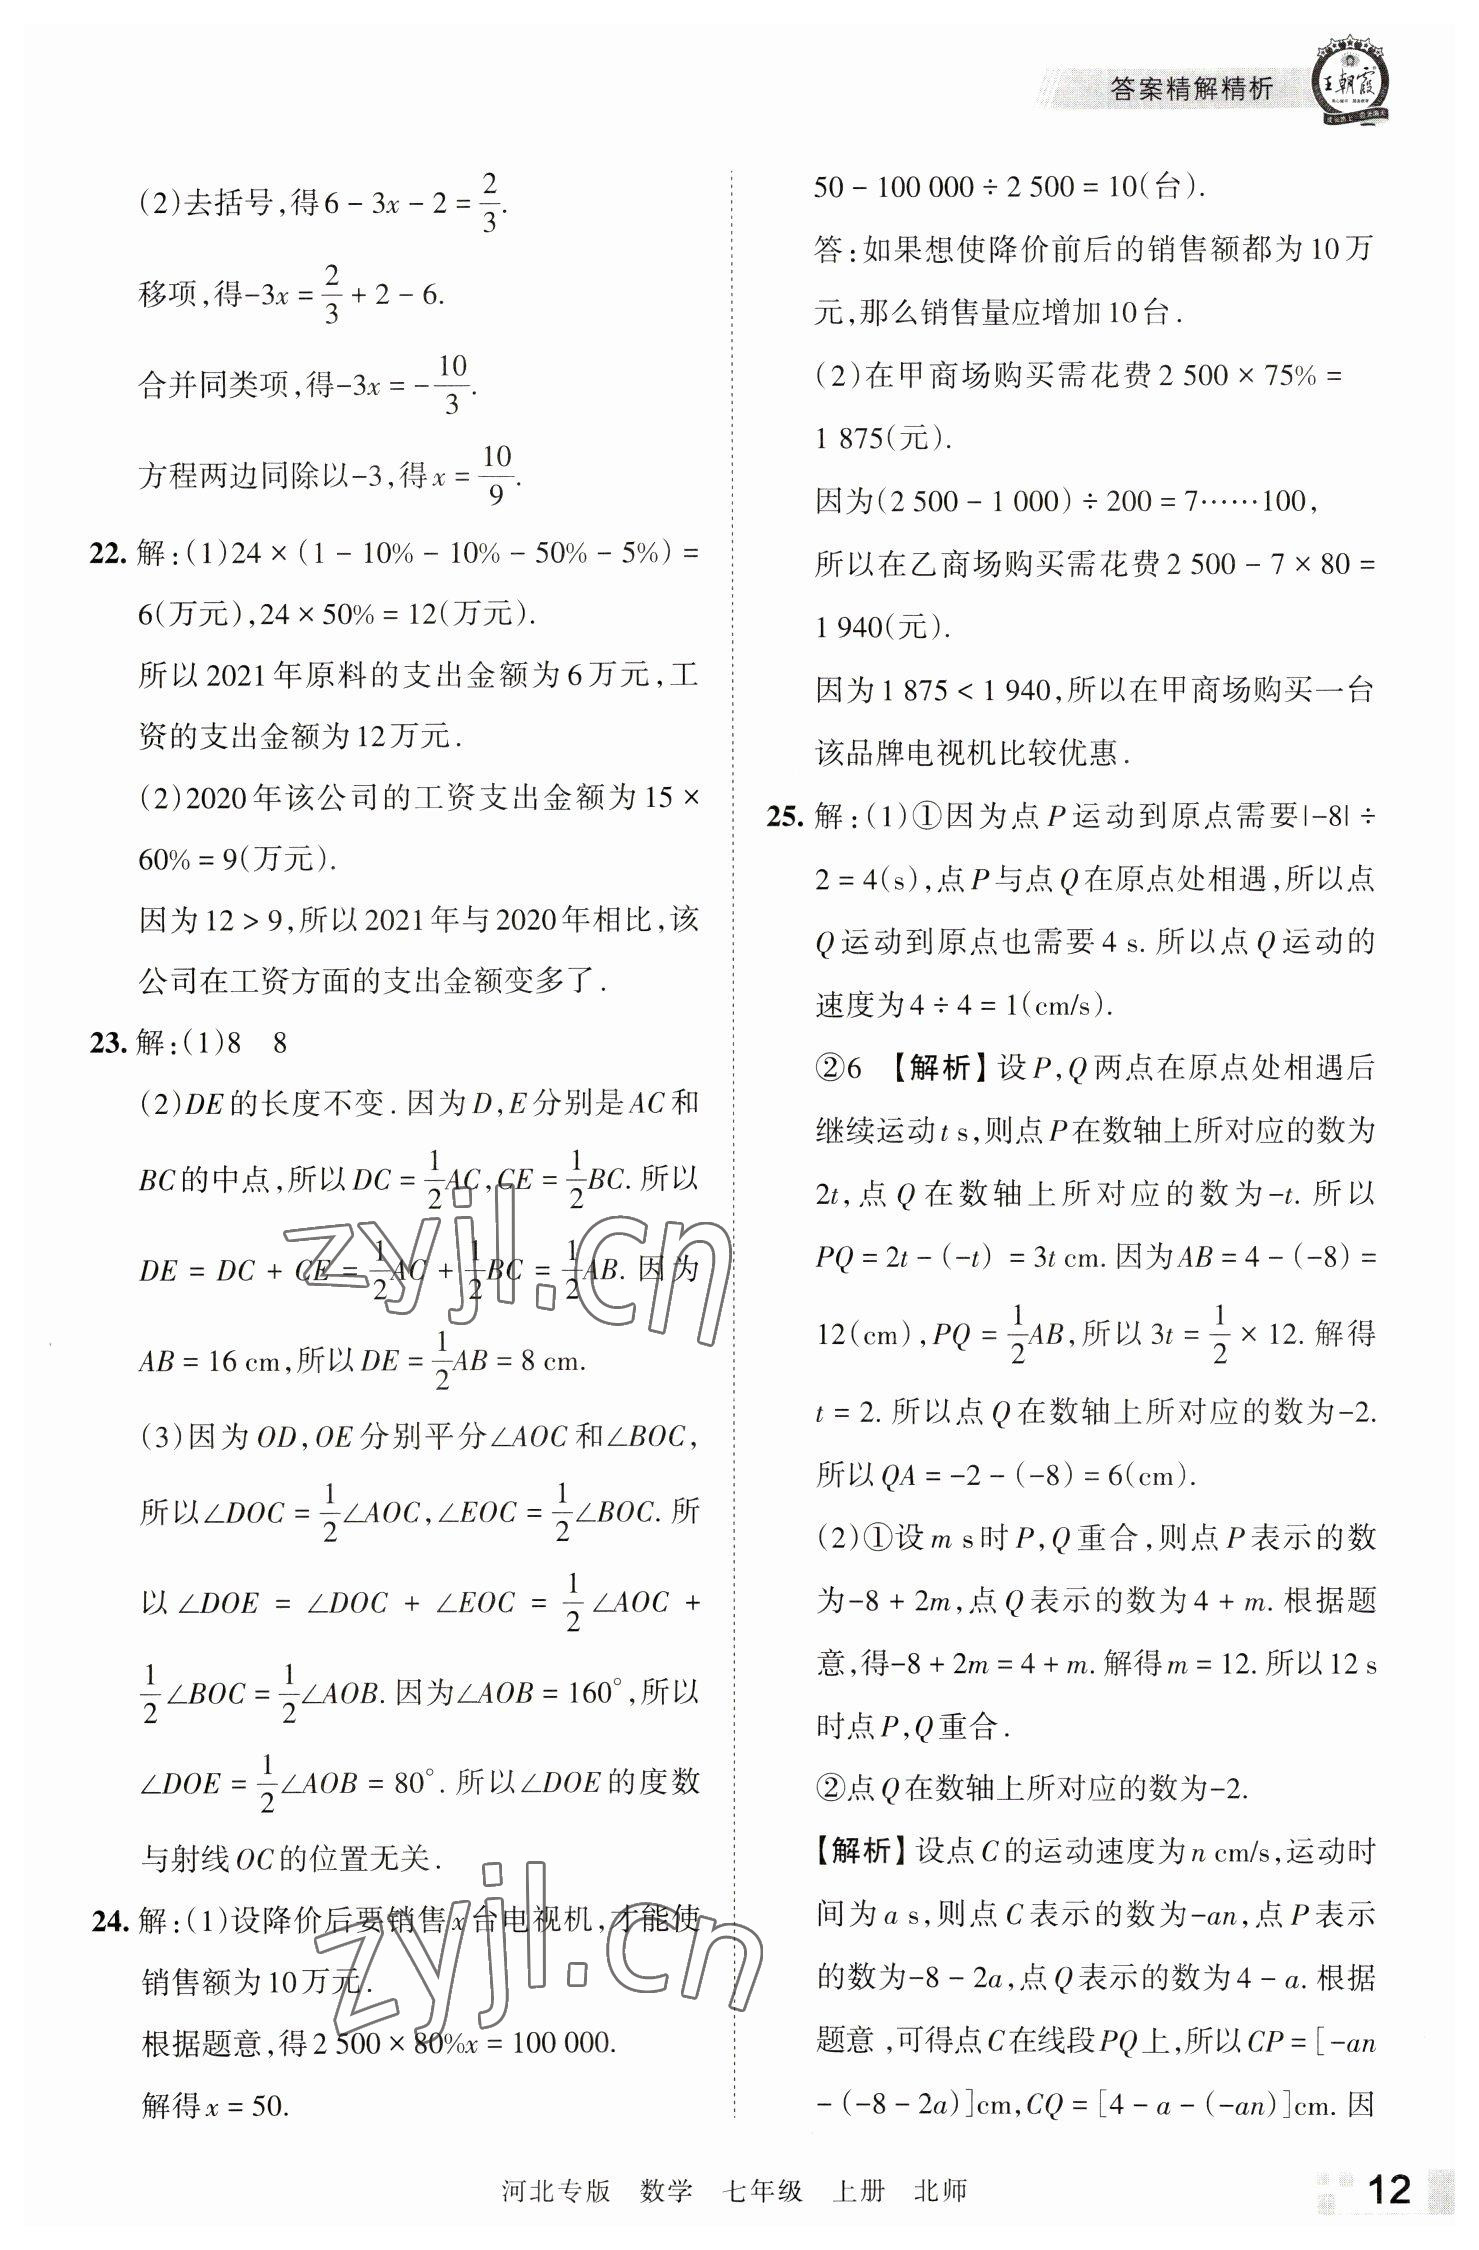 答案精解精析
王朝霞
(2)去括号,得6-3x-2=2/3.
移项,得-3x=2/3+2-6.
合并同类项,得-3x=-10/3.
方程两边同除以-3,得x=10/9.
22. 解:(1)24×(1-10%-10%-50%-5%)=
6(万元),24×50%=12(万元).
所以2021年原料的支出金额为6万元,工
资的支出金额为12万元.
(2)2020年该公司的工资支出金额为15×
60%=9(万元).
因为12>9,所以2021年与2020年相比,该
公司在工资方面的支出金额变多了.
23. 解:(1)8 8
(2)DE的长度不变.因为D,E分别是AC和
BC的中点,所以DC=1/2AC,CE=1/2BC.所以
DE=DC+CE=1/2AC+1/2BC=1/2AB.因为
AB=16 cm,所以DE=1/2AB=8 cm.
(3)因为OD,OE分别平分∠AOC和∠BOC,
所以∠DOC=1/2∠AOC,∠EOC=1/2∠BOC.所
以∠DOE=∠DOC+∠EOC=1/2∠AOC+
1/2∠BOC=1/2∠AOB.因为∠AOB=160°,所以
∠DOE=1/2∠AOB=80°.所以∠DOE的度数
与射线OC的位置无关.
24. 解:(1)设降价后要销售x台电视机,才能使
销售额为10万元.
根据题意,得2 500×80%x=100 000.
解得x=50.
50-100 000÷2 500=10(台).
答:如果想使降价前后的销售额都为10万
元,那么销售量应增加10台.
(2)在甲商场购买需花费2 500×75%=
1 875(元).
因为(2 500-1 000)÷200=7……100,
所以在乙商场购买需花费2 500-7×80=
1 940(元).
因为1 875<1 940,所以在甲商场购买一台
该品牌电视机比较优惠.
25. 解:(1)①因为点P运动到原点需要|-8|÷
2=4(s),点P与点Q在原点处相遇,所以点
Q运动到原点也需要4 s.所以点Q运动的
速度为4÷4=1(cm/s).
②6 【解析】设P,Q两点在原点处相遇后
继续运动t s,则点P在数轴上所对应的数为
2t,点Q在数轴上所对应的数为-t.所以
PQ=2t-(-t)=3t cm.因为AB=4-(-8)=
12(cm),PQ=1/2AB,所以3t=1/2×12.解得
t=2.所以点Q在数轴上所对应的数为-2.
所以QA=-2-(-8)=6(cm).
(2)①设m s时P,Q重合,则点P表示的数
为-8+2m,点Q表示的数为4+m.根据题
意,得-8+2m=4+m.解得m=12.所以12 s
时点P,Q重合.
②点Q在数轴上所对应的数为-2.
【解析】设点C的运动速度为n cm/s,运动时
间为a s,则点C表示的数为-an,点P表示
的数为-8-2a,点Q表示的数为4-a.根据
题意,可得点C在线段PQ上,所以CP=[-an
-(-8-2a)]cm,CQ=[4-a-(-an)]cm.因
zyjl.cn
zyjl.cn
河北专版 数学 七年级 上册 北师
12